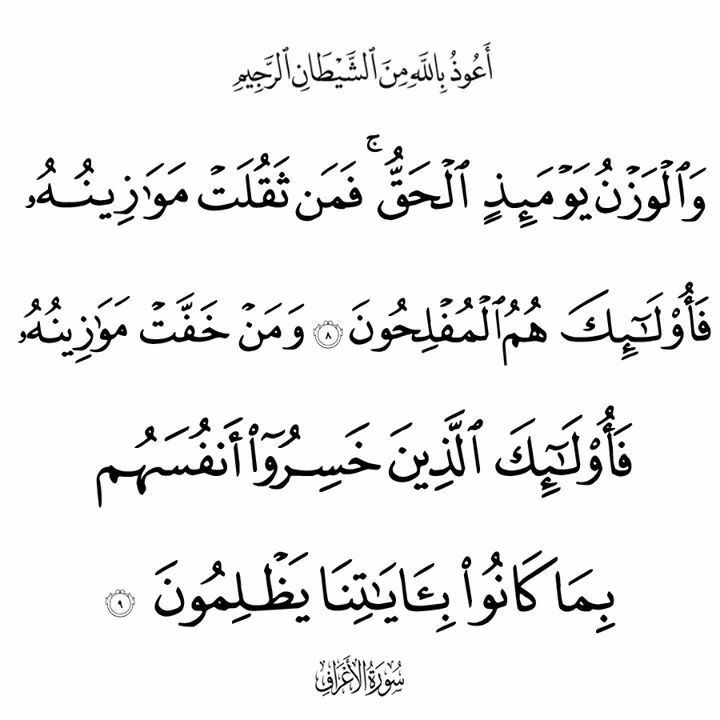 أَعُوذُ بِاللَّهِ مِنَ ٱلشَّيْطَانِ ٱلرَّجِيمِ
وَٱلْوَزْنُ يَوْمَئِذٍ ٱلْحَقُّ ۚ فَمَن ثَقُلَتْ مَوَٰزِينُهُۥ
فَأُو۟لَـٰٓئِكَ هُمُ ٱلْمُفْلِحُونَ ٨ وَمَنْ خَفَّتْ مَوَٰزِينُهُۥ
فَأُو۟لَـٰٓئِكَ ٱلَّذِينَ خَسِرُوٓا۟ أَنفُسَهُم
بِمَا كَانُوا۟ بِـَٔايَـٰتِنَا يَظْلِمُونَ ٩
سُورَةُ الأَعْرَافِ